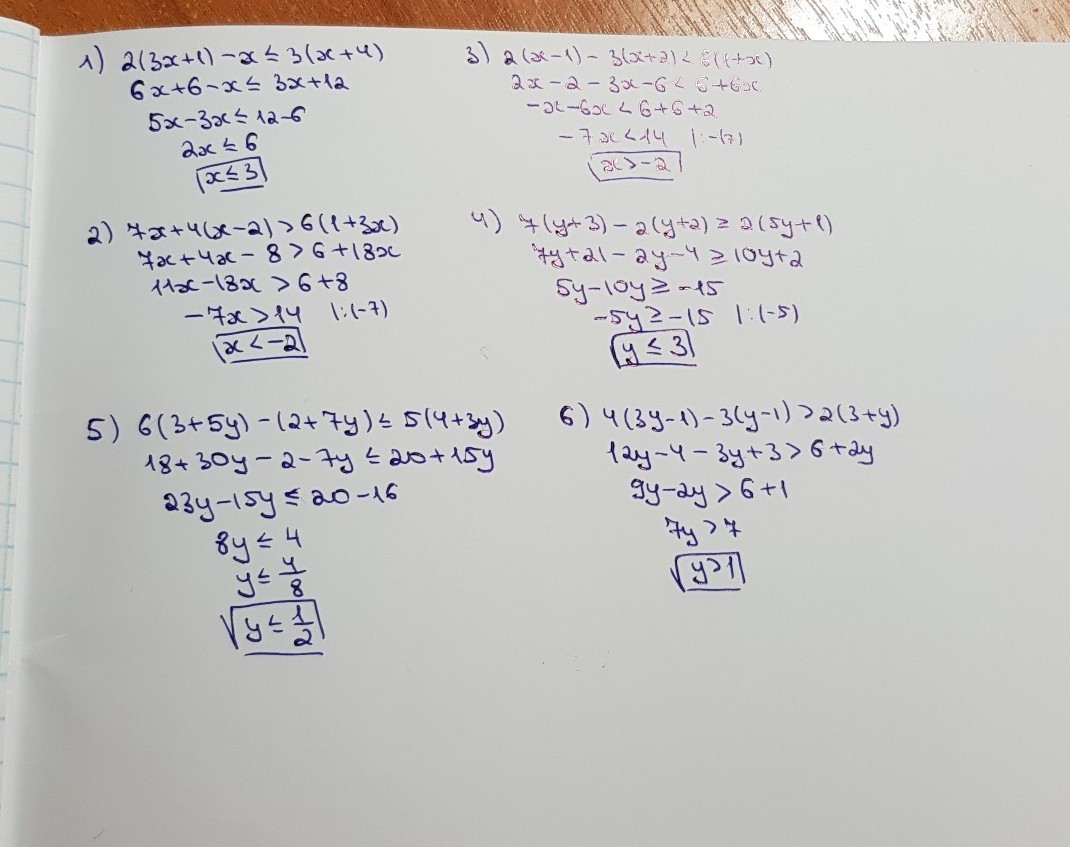 1) 2(3x+1)-x ≤ 3(x+4)
6x+6-x ≤ 3x+12
5x-3x ≤ 12-6
2x ≤ 6
x ≤ 3
2) 7x+4(x-2) > 6(1+3x)
7x+4x-8 > 6+18x
11x-18x > 6+8
-7x > 14 |:(-7)
x < -2
3) 2(x-1)-3(x+2) < 6(1+x)
2x-2-3x-6 < 6+6x
-x-6x < 6+6+2
-7x < 14 |:-(7)
x > -2
4) 7(y+3)-2(y+2) ≥ 2(5y+1)
7y+21-2y-4 ≥ 10y+2
5y-10y ≥ -15
-5y ≥ -15 |:(-5)
y ≤ 3
5) 6(3+5y)-(2+7y) ≤ 5(4+3y)
18+30y-2-7y ≤ 20+15y
23y-15y ≤ 20-16
8y ≤ 4
y ≤ 4/8
y ≤ 1/2
6) 4(3y-1)-3(y-1) > 2(3+y)
12y-4-3y+3 > 6+2y
9y-2y > 6+1
7y > 7
y > 1